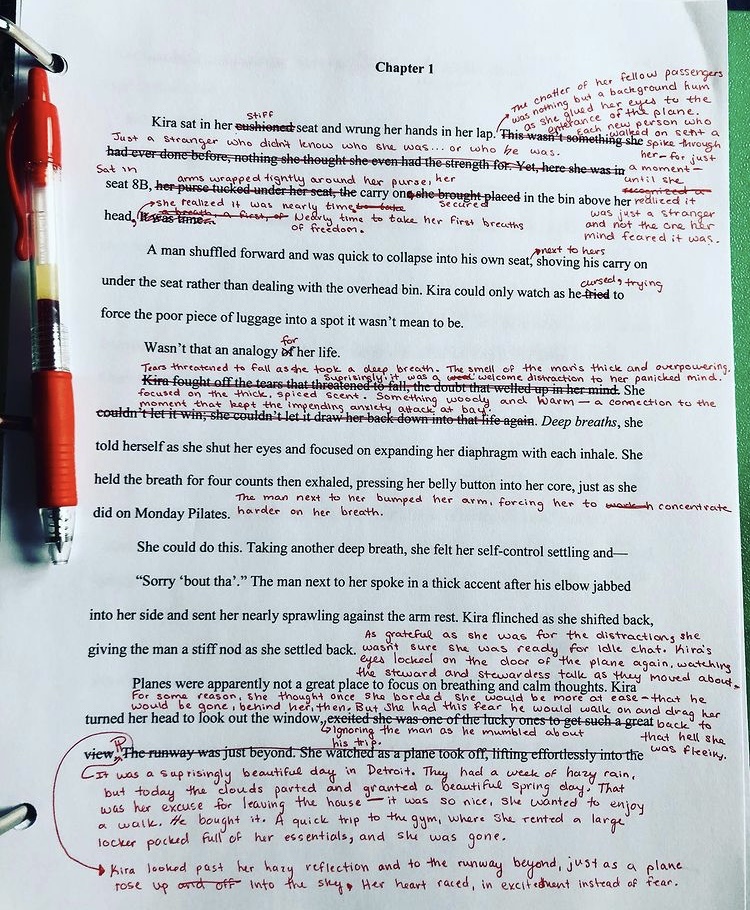 Chapter 1
The chatter of her fellow passengers
was nothing but a background hum
as she glued her eyes to the
entrance of the plane.
Each new person who
walked on sent a
stiff
Kira sat in her cushioned seat and wrung her hands in her lap. This wasn't something she spike through
Just a stranger who didn't know who she was... or who he was. her – for just
had ever done before, nothing she thought she even had the strength for. Yet, here she was in a moment –
Sat in arms wrapped tightly around her purse, her until she
recognized a
seat 8B, her purse tucked under her seat, the carry on she brought placed in the bin above her realized it
she realized it was nearly time to take secured was just a stranger
head, It was time. a breath, a first, of Nearly time to take her first breaths and not the one her
of freedom. mind feared it was.
next to hers
A man shuffled forward and was quick to collapse into his own seat, shoving his carry on
cursed, trying
under the seat rather than dealing with the overhead bin. Kira could only watch as he tried to
force the poor piece of luggage into a spot it wasn't meant to be.
for
Wasn't that an analogy of her life.
Tears threatened to fall as she took a deep breath. The smell of the man's thick and overpowering.
Suprisingly, it was a welcome distraction to her panicked mind.
Kira fought off the tears that threatened to fall, the doubt that welled up in her mind. She
focused on the thick, spiced scent. Something woody and warm – a connection to the
moment that kept the impending anxiety attack at bay.
couldn't let it win; she couldn't let it draw her back down into that life again. Deep breaths, she
told herself as she shut her eyes and focused on expanding her diaphragm with each inhale. She
held the breath for four counts then exhaled, pressing her belly button into her core, just as she
The man next to her bumped her arm, forcing her to concentrate
did on Monday Pilates. harder on her breath.
She could do this. Taking another deep breath, she felt her self-control settling and—
“Sorry ‘bout tha’.” The man next to her spoke in a thick accent after his elbow jabbed
into her side and sent her nearly sprawling against the arm rest. Kira flinched as she shifted back,
As grateful as she was for the distraction, she
giving the man a stiff nod as she settled back. wasn't sure she was ready for idle chat. Kira's
eyes locked on the door of the plane again, watching
the steward and stewardess talk as they moved about.
Planes were apparently not a great place to focus on breathing and calm thoughts. Kira
For some reason, she thought once she borded she would be more at ease – that he
would be gone, behind her, then. But she had this fear he would walk on and drag her
turned her head to look out the window, excited she was one of the lucky ones to get such a great back to
ignoring the man as he mumbled about that hell she
his trip. was fleeing.
view. The runway was just beyond. She watched as a plane took off, lifting effortlessly into the
It was a suprisingly beautiful day in Detroit. They had a week of hazy rain,
but today the clouds parted and granted a beautiful spring day. That
was her excuse for leaving the house – it was so nice, she wanted to enjoy
a walk. He bought it. A quick trip to the gym, where she rented a large
locker packed full of her essentials, and she was gone.
Kira looked past her hazy reflection and to the runway beyond, just as a plane
rose up and off into the sky. Her heart raced, in excitement instead of fear.